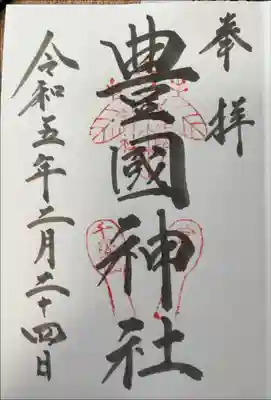 奉拝
豊國神社
令和五年二月二十四日